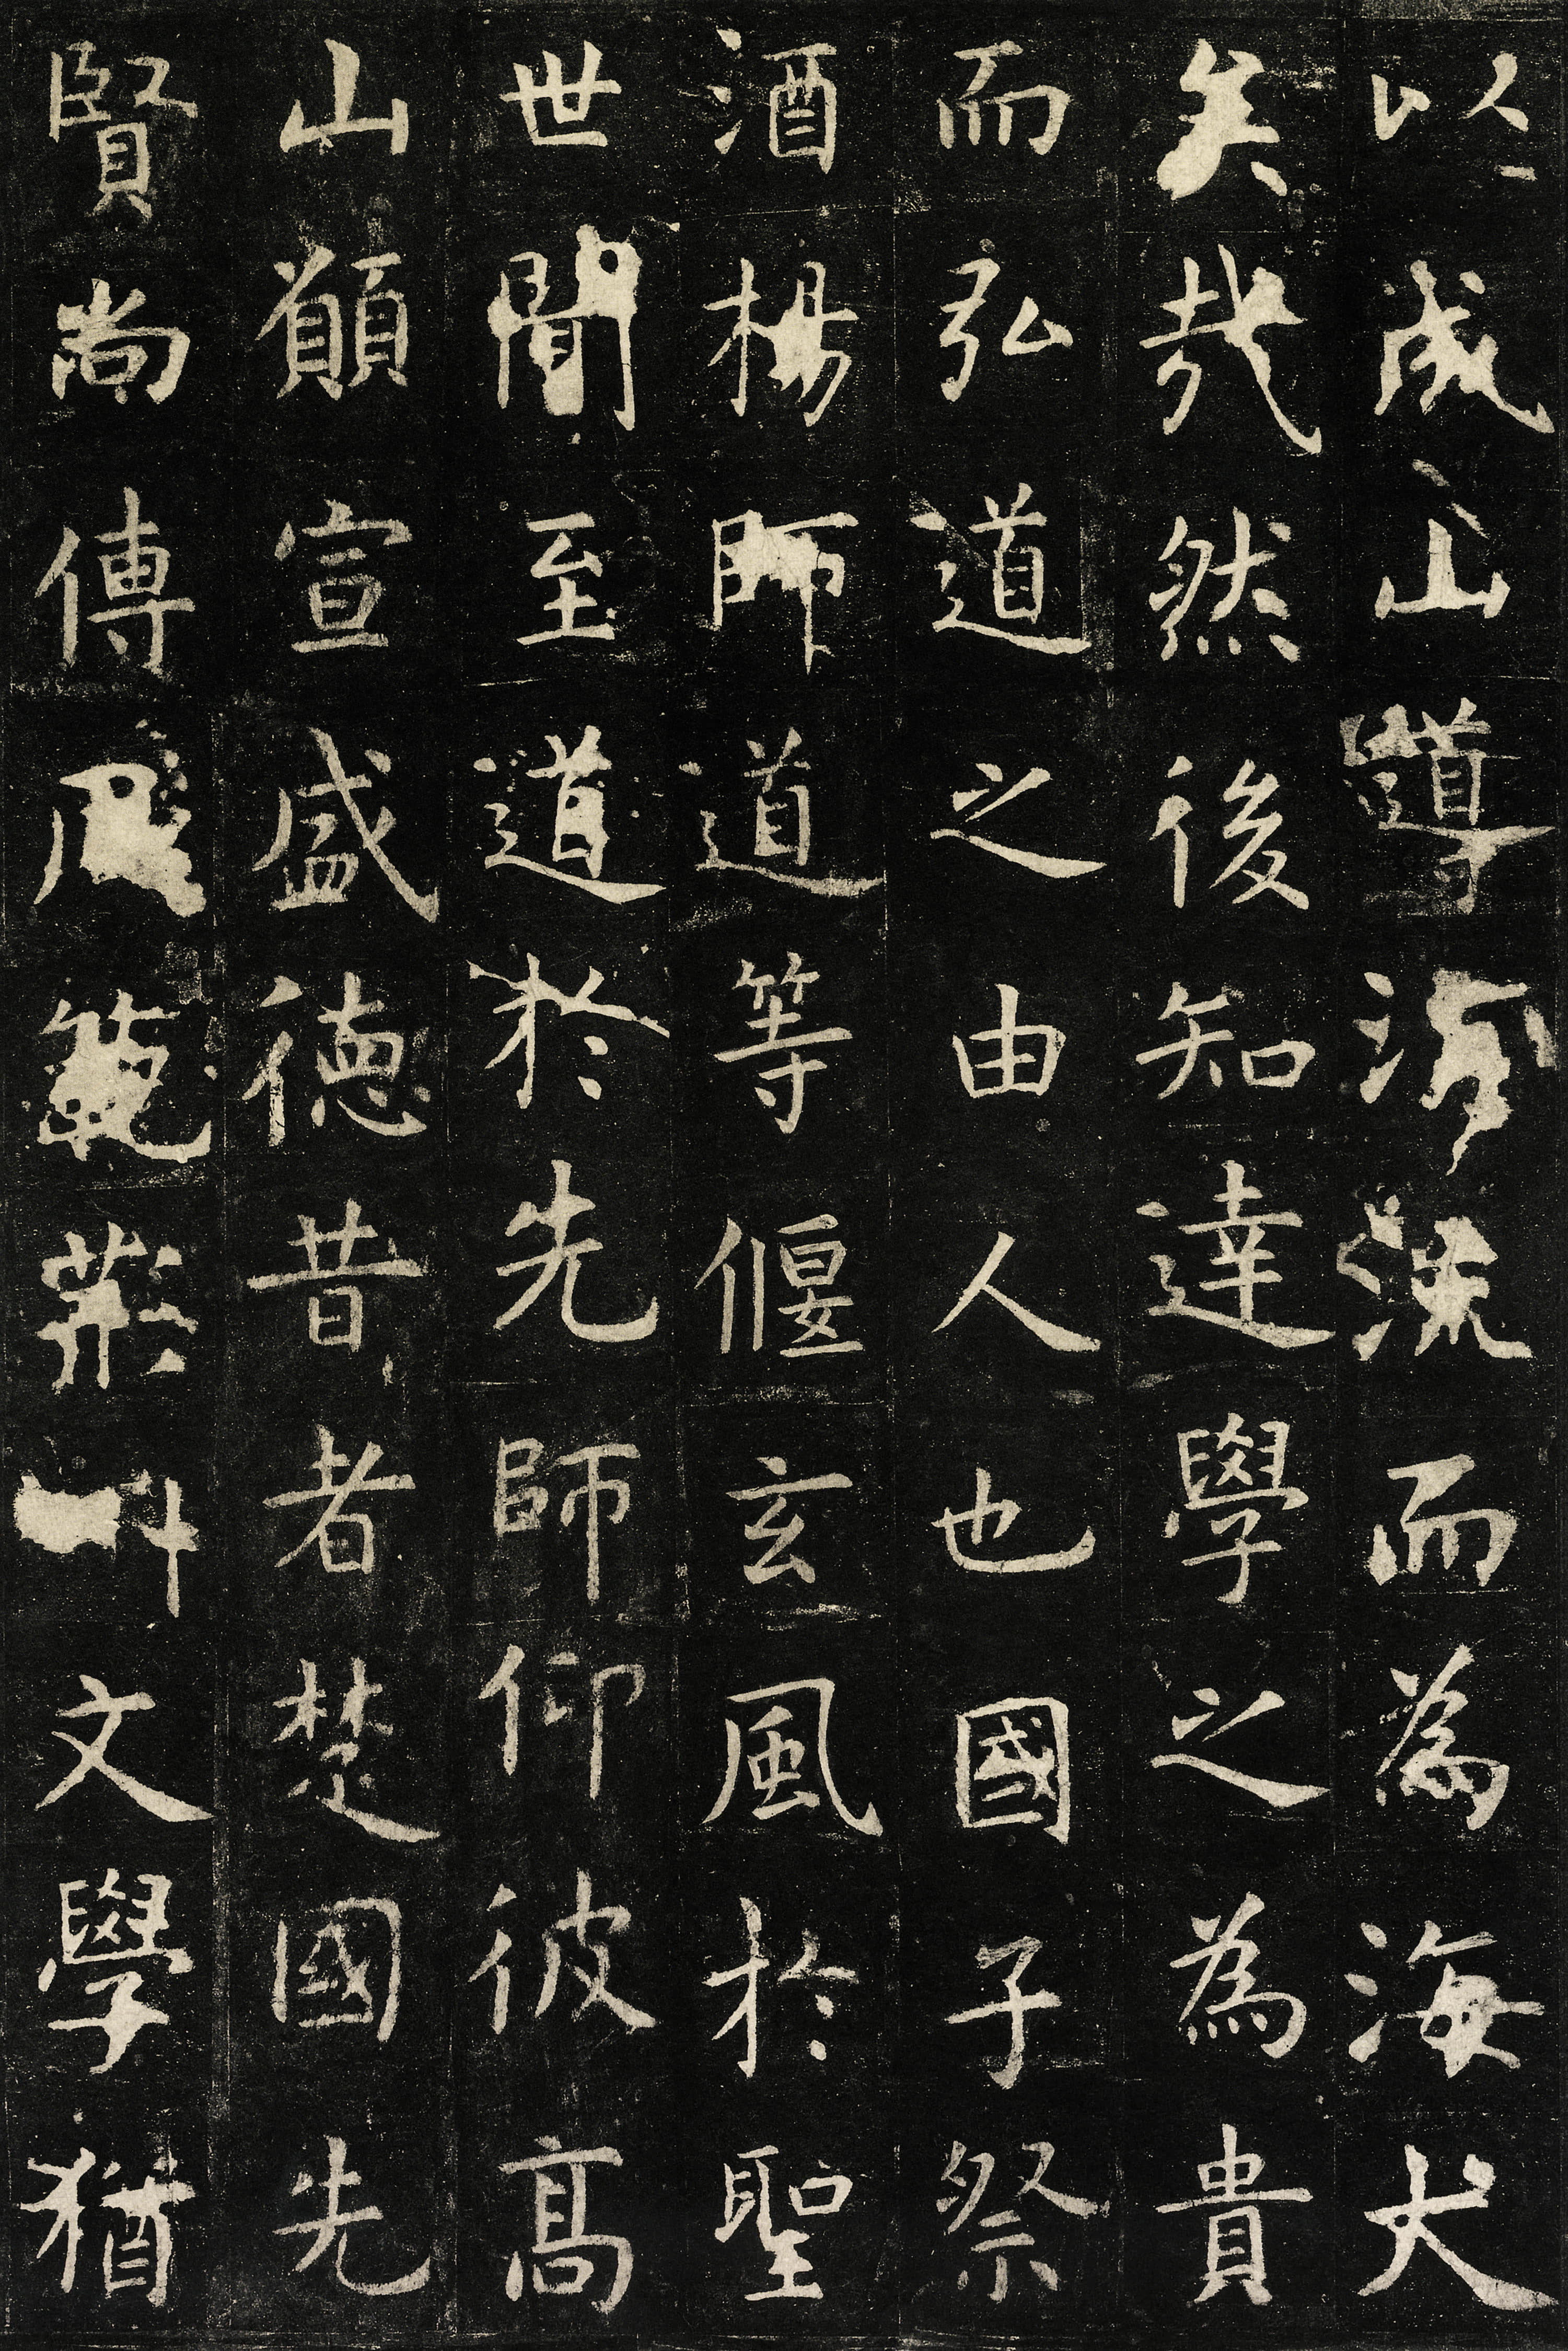 以成山導海流而為海大
矣哉然後知達學之為貴
而弘道之由人也國子祭
酒楊師道等偃玄風於聖
世聞至道於先師仰彼高
山願宣盛德昔者楚國先
賢尚傳風範荊州文學猶